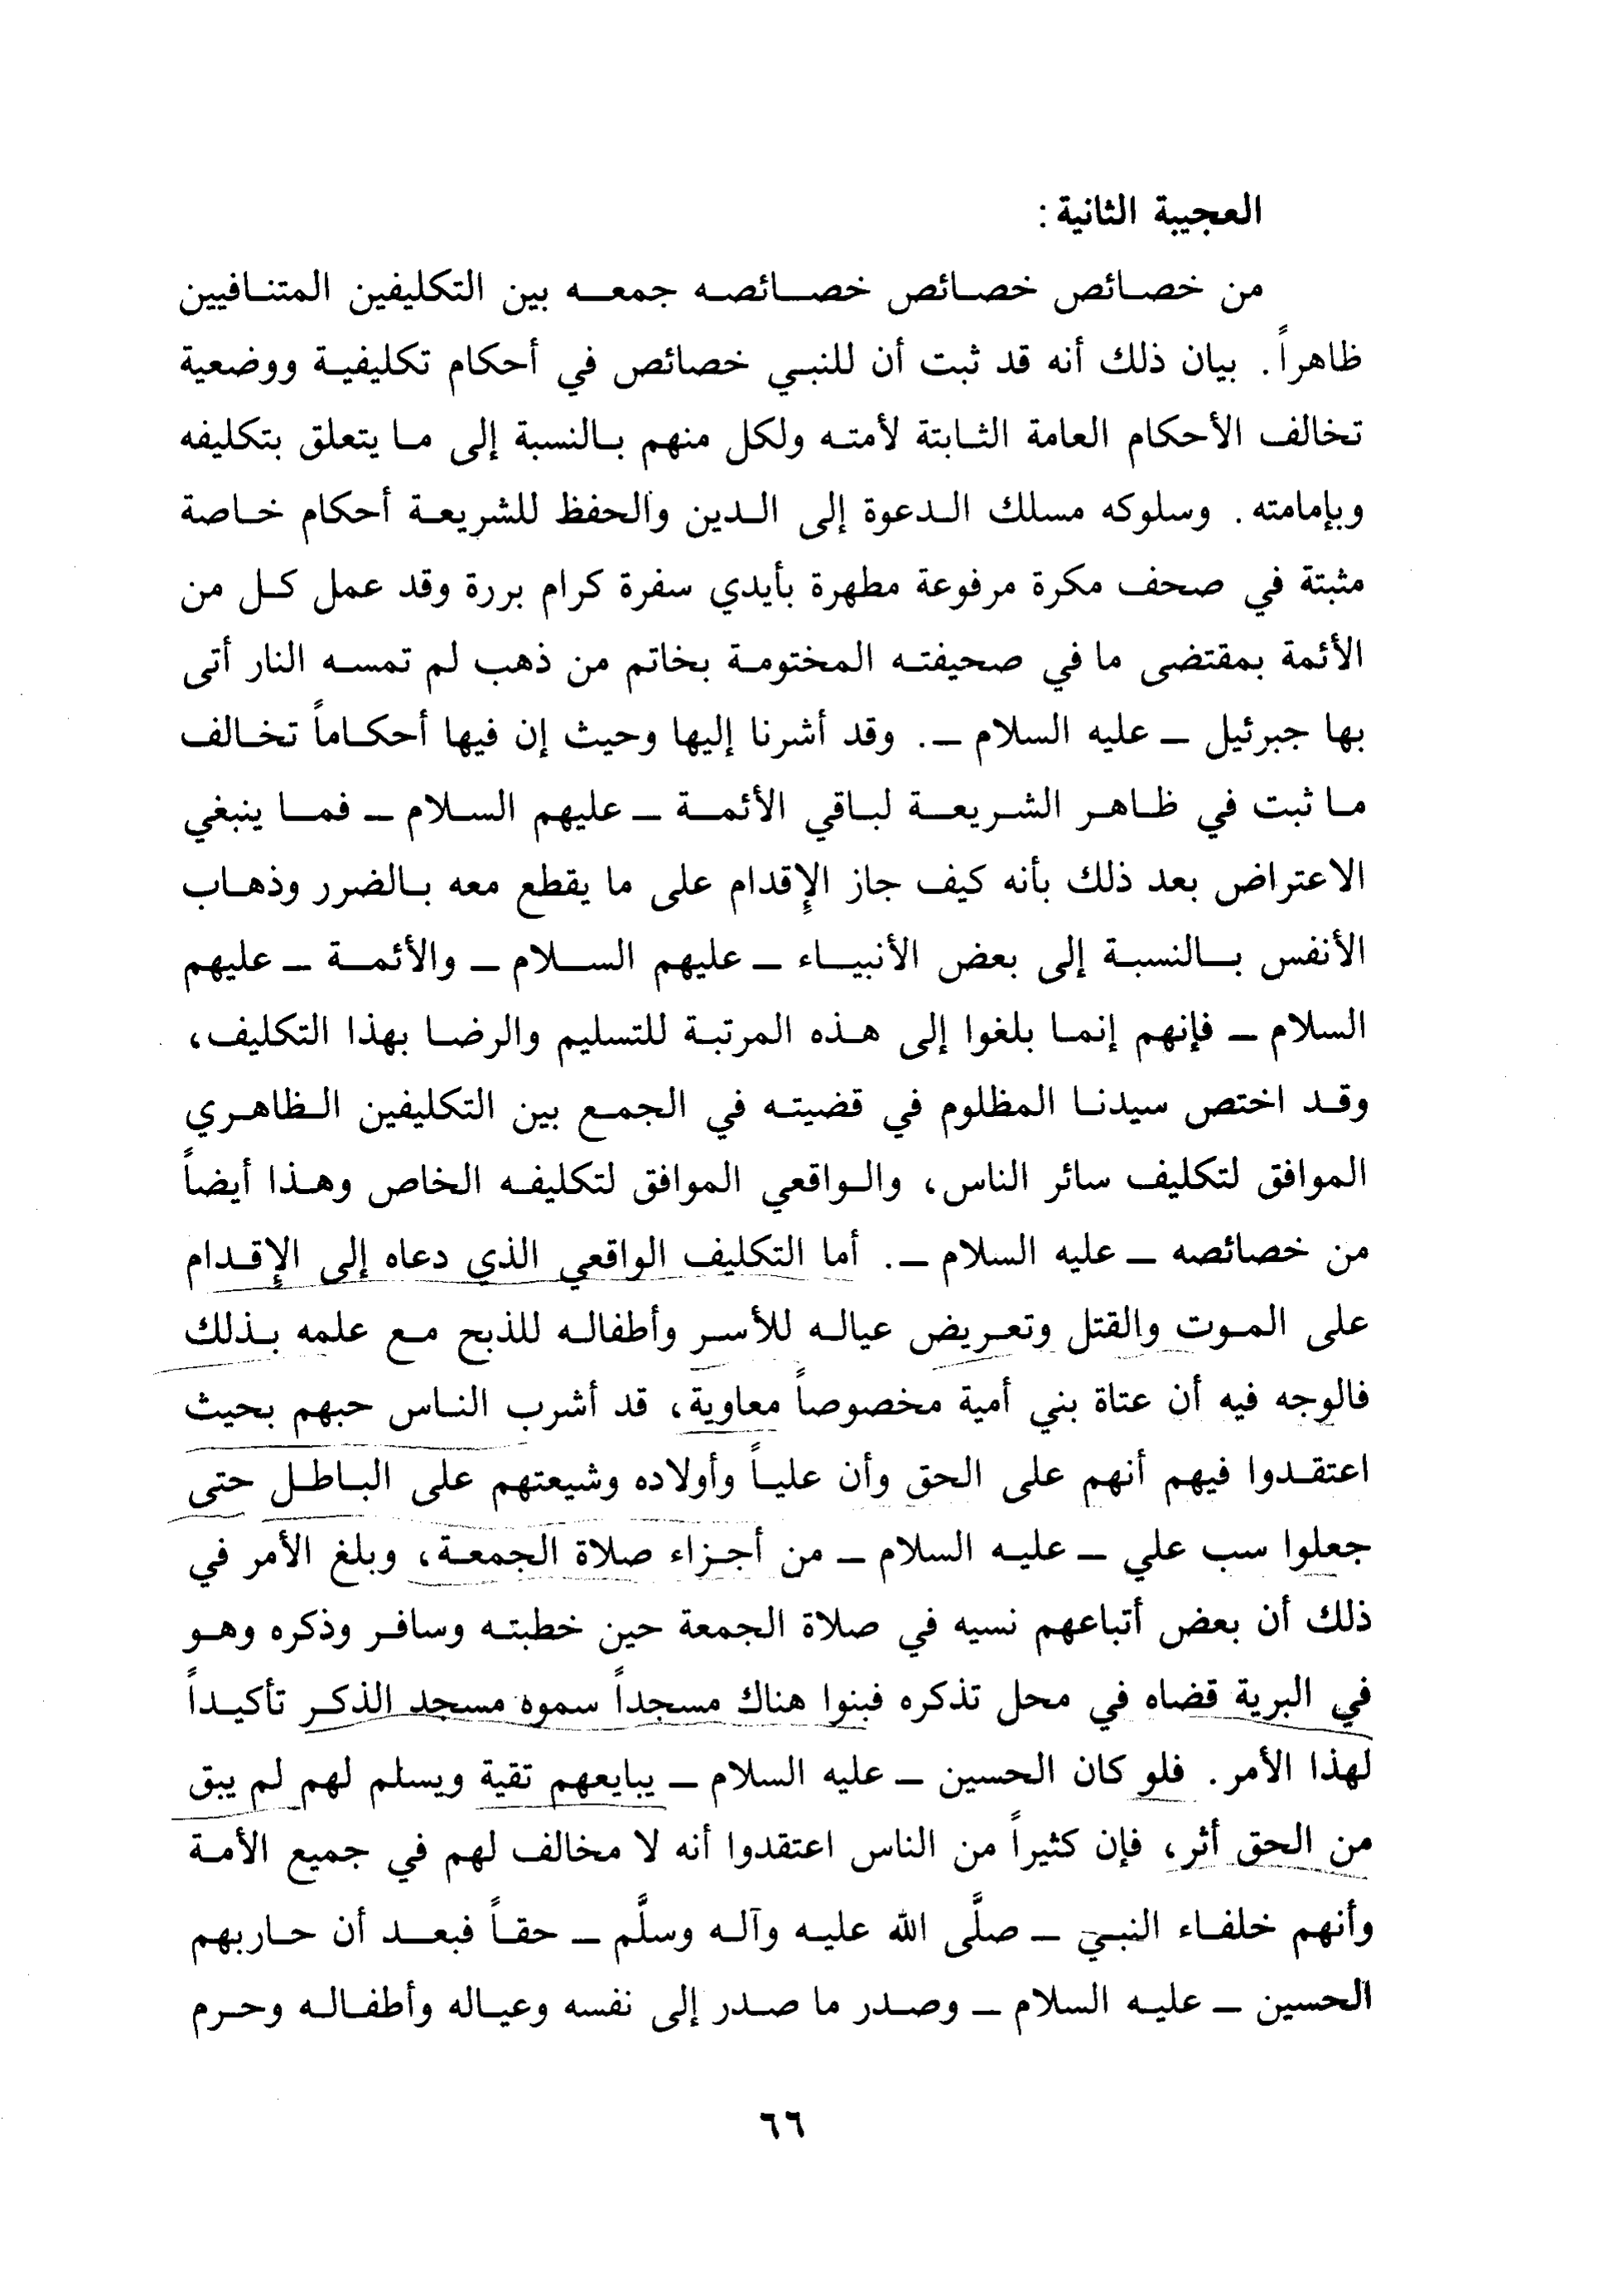 العجيبة الثانية :
من خصائص خصائص خصائصه جمعه بين التكليفين المتنافيين
ظاهراً . بيان ذلك أنه قد ثبت أن للنبي خصائص في أحكام تكليفية ووضعية
تخالف الأحكام العامة الثابتة لأمته ولكل منهم بالنسبة إلى ما يتعلق بتكليفه
وبإمامته . وسلوكه مسلك الدعوة إلى الدين والحفظ للشريعة أحكام خاصة
مثبتة في صحف مكرة مرفوعة مطهرة بأيدي سفرة كرام بررة وقد عمل كل من
الأئمة بمقتضى ما في صحيفته المختومة بخاتم من ذهب لم تمسه النار أتى
بها جبرئيل ــ عليه السلام ــ . وقد أشرنا إليها وحيث إن فيها أحكاماً تخالف
ما ثبت في ظاهر الشريعة لباقي الأئمة ــ عليهم السلام ــ فما ينبغي
الاعتراض بعد ذلك بأنه كيف جاز الإقدام على ما يقطع معه بالضرر وذهاب
الأنفس بالنسبة إلى بعض الأنبياء ــ عليهم السلام ــ والأئمة ــ عليهم
السلام ــ فإنهم إنما بلغوا إلى هذه المرتبة للتسليم والرضا بهذا التكليف ،
وقد اختص سيدنا المظلوم في قضيته في الجمع بين التكليفين الظاهري
الموافق لتكليف سائر الناس ، والواقعي الموافق لتكليفه الخاص وهذا أيضاً
من خصائصه ــ عليه السلام ــ . أما التكليف الواقعي الذي دعاه إلى الإقدام
على الموت والقتل وتعريض عياله للأسر وأطفاله للذبح مع علمه بذلك
فالوجه فيه أن عتاة بني أمية مخصوصاً معاوية ، قد أشرب الناس حبهم بحيث
اعتقدوا فيهم أنهم على الحق وأن علياً وأولاده وشيعتهم على الباطل حتى
جعلوا سب علي ــ عليه السلام ــ من أجزاء صلاة الجمعة ، وبلغ الأمر في
ذلك أن بعض أتباعهم نسيه في صلاة الجمعة حين خطبته وسافر وذكره وهو
في البرية قضاه في محل تذكره فبنوا هناك مسجداً سموه مسجد الذكر تأكيداً
لهذا الأمر . فلو كان الحسين ــ عليه السلام ــ يبايعهم تقية ويسلم لهم لم يبق
من الحق أثر ، فإن كثيراً من الناس اعتقدوا أنه لا مخالف لهم في جميع الأمة
وأنهم خلفاء النبي ــ صلَّى الله عليه وآله وسلَّم ــ حقاً فبعد أن حاربهم
الحسين ــ عليه السلام ــ وصدر ما صدر إلى نفسه وعياله وأطفاله وحرم
٦٦